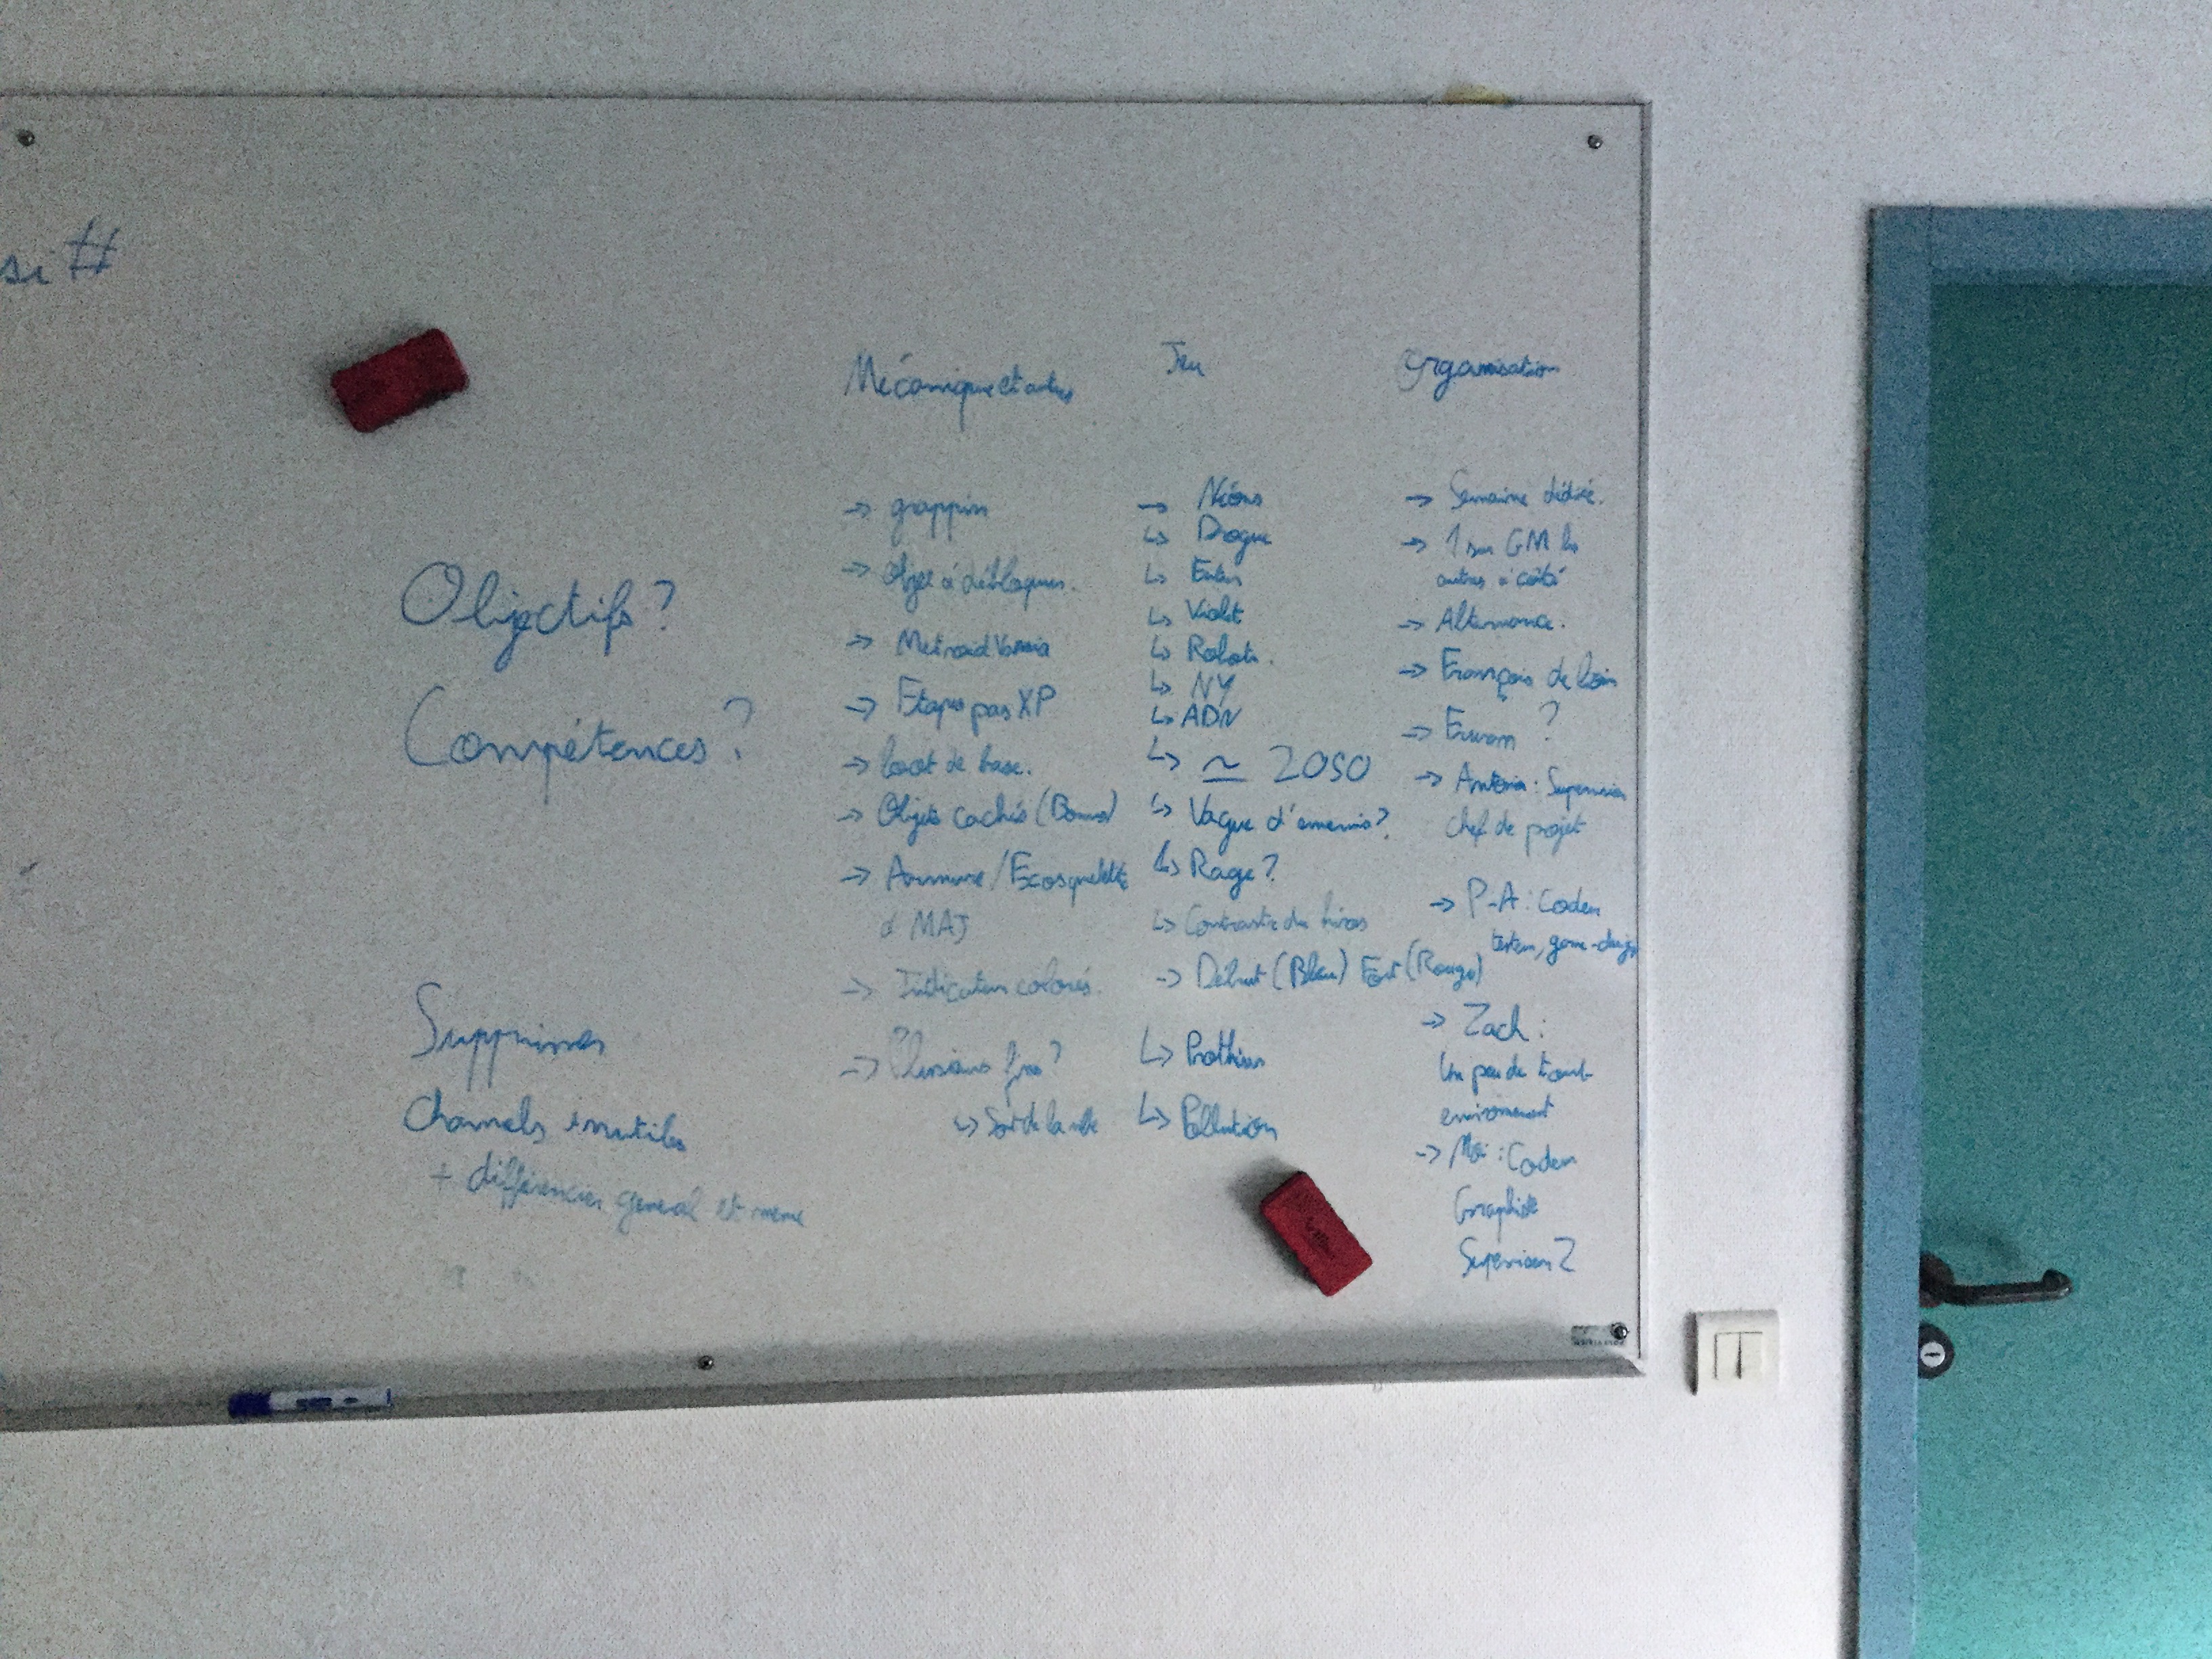 si #
Objectifs?
Compétences?
Supprimer
Channels inutiles
+ différencier général et meme
Mécanique et autres
-> grappin
-> Objet à débloquer.
-> Metroid Vania
-> Etapes pas XP
-> loot de base.
-> Objets cachés (Bonus)
-> Armure / Exosquelette
à MAJ
-> Indicateur colorés.
-> Plusieurs fins?
↳ Sort de la ville
Jeu
-> Néons
↳ Drogue
↳ Violet
↳ Robots.
↳ NY
↳ ADN
↳ ≃ 2050
↳ Vague d'ennemis?
↳ Rage?
↳ Contraste du héros
-> Début (Bleu) Fort (Rouge)
↳ Pollution
Organisation
-> Semaine dédié.
-> 1 sur GM les
autres à côté
-> Alternance.
-> François de loin
-> Erwan ?
-> Antonin: Superviseur
chef de projet
-> P-A: Coder
testeur, game-design
-> Zach:
Un peu de tout
environment
-> Moi: Coder
Graphiste
Superviseur 2